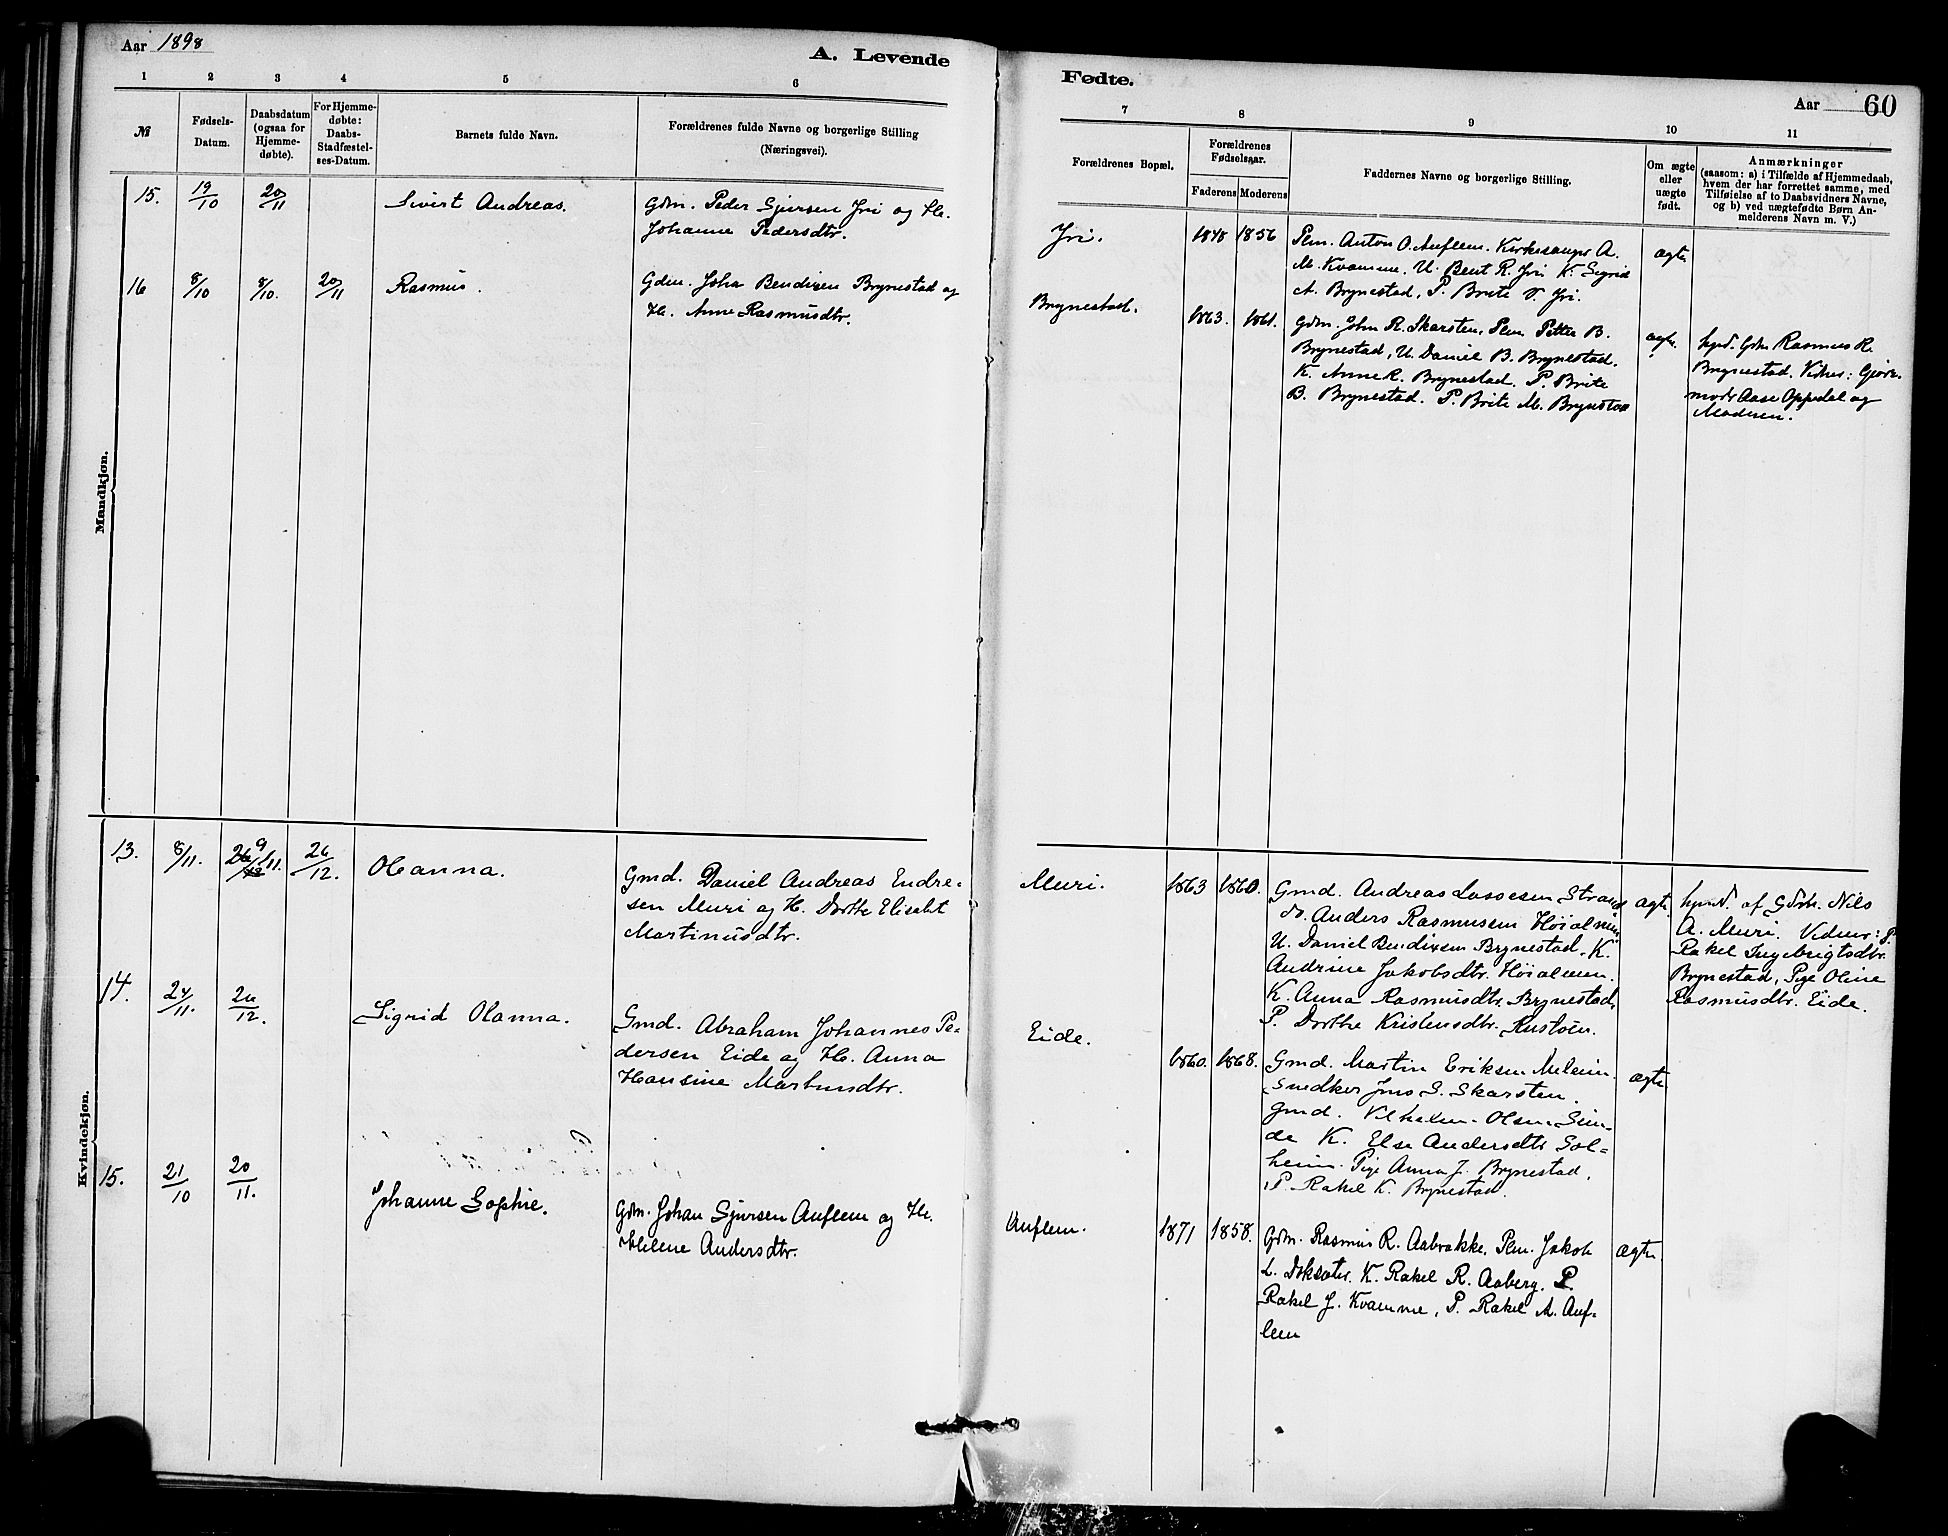 Aar 1898
A. Levende
1 2 3 4 5 6
№
Fødsels-
Datum.
Daabsdatum
(ogsaa for
Hjemme-
døbte).
For Hjemme-
døbte:
Daabs-
Stadfæstel-
ses-Datum.
Barnets fulde Navn.
Forældrenes fulde Navne og borgerlige Stilling
(Næringsvei).
Mandkjøn.
15. 19/10 20/11 Sivert Andreas. Gdm. Peder Sjursen Jri og H.
Johanne Pedersdtr.
16 8/10 8/10. 20/11 Rasmus. Gdm. Joha Bendixen Brynestad og
H. Anne Rasmusdtr.
Kvindekjøn.
13. 8/11. 9/11. 26/12. Olanna. Gmd. Daniel Andreas Endre-
sen Muri og H. Dorthe Elisabet
Martinusdtr.
14. 24/11. 26/12. Sigrid Olanna. Gmd. Abraham Johannes Pe-
dersen Eide og H. Anna
Hansine Martinusdtr.
15. 21/10 20/11. Johanne Sophie. Gdm. Johan Sjursen Auflem og H.
Helene Andersdtr.
Fødte.
Aar 60
7 8 9 10 11
Forældrenes Bopæl.
Forældrenes
Fødselsaar.
Faderens Moderens
Faddernes Navne og borgerlige Stilling.
Om ægte
eller
uægte
født.
Anmærkninger
(saasom: a) i Tilfælde af Hjemmedaab,
hvem der har forrettet samme, med
Tilføielse af to Daabsvidners Navne,
og b) ved uægtefødte Børn An-
melderens Navn m. V.)
Jri. 1848 1856 Plm. Anton O. Auflem. Kirkesanger A. ægte
M. Kvamme. U. Bent R. Jri K. Sigrid
A. Brynestad, P. Brite V. Jri.
Brynestad. 1863. 1861. Gdm. John R. Skarsten, Plm Petter B. ægte.
Brynestad, U. Daniel B. Brynestad.
K. Anne R. Brynestad. P. Brite
B. Brynestad. P. Brite M. Brynestad
hjmd. Gdm Rasmus R.
Brynestad. Vidner: Gjorde-
moder Aase Oppedal og
Moderen.
Muri. 1863 1860. Gmd. Andreas Lassesen Strand ægte.
do. Anders Rasmussen Høialmen
U. Daniel Bendixsen Brynestad. K.
Andrine Jakobsdtr. Høialmen.
K. Anna Rasmusdtr. Brynestad,
P. Dorthe Kristensdtr. Rustøen.
hjmd. af Gdbr. Nils
A. Muri. Vidner: P.
Rakel Ingebrigtsdtr.
Brynestad, Pige Oline
Rasmusdtr. Eide.
Eide. 1860. 1868. Gmd. Martin Eriksen Meleim. ægte
Snedker Jens S. Skarsten.
Gmd. Vilhelm Olsen Sun-
de K. Else Andersdtr Sol-
heim. Pige Anna J. Brynestad,
P. Rakel K. Brynestad.
Auflem. 1871 1858. Gdm. Rasmus R. Aabrekke, Plm. Jakob ægte.
L. K. Rakel R. Aaberg. P.
Rakel J. Kvamme, P. Rakel A. Auf-
lem